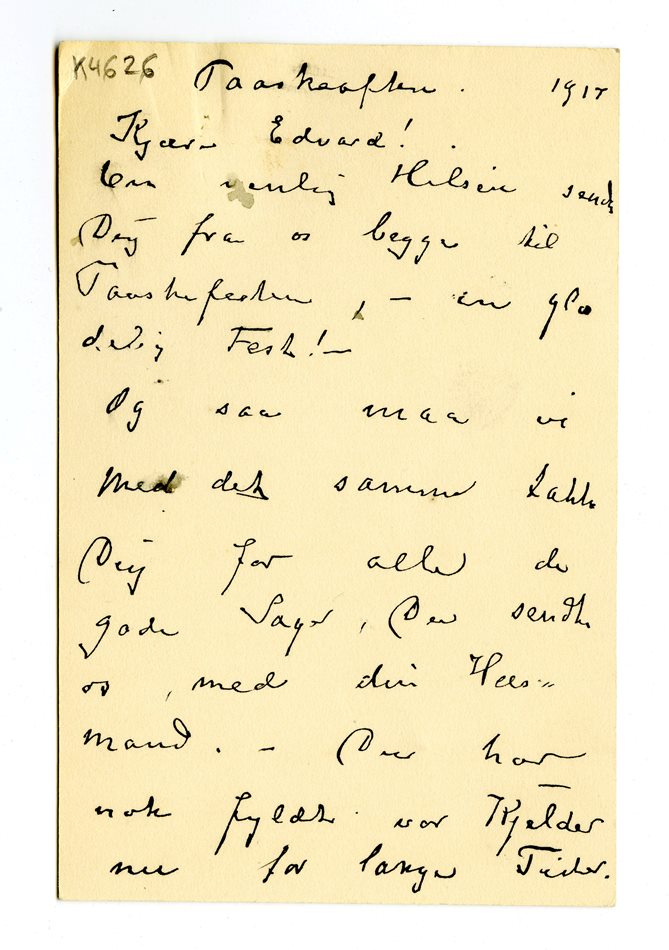 K4626
Paaskeaften. 1917
Kjære Edvard!
En venlig Hilsen sendes
Dig fra os begge til
Paaskefesten, – en glæ
delig Fest! –
Og saa maa vi
med det samme takke
Dig for alle de
gode Sager, Du sendte
os, med din Hus=
mand. – Du har
nok fyldt vor Kjelder
nu for lange Tider.